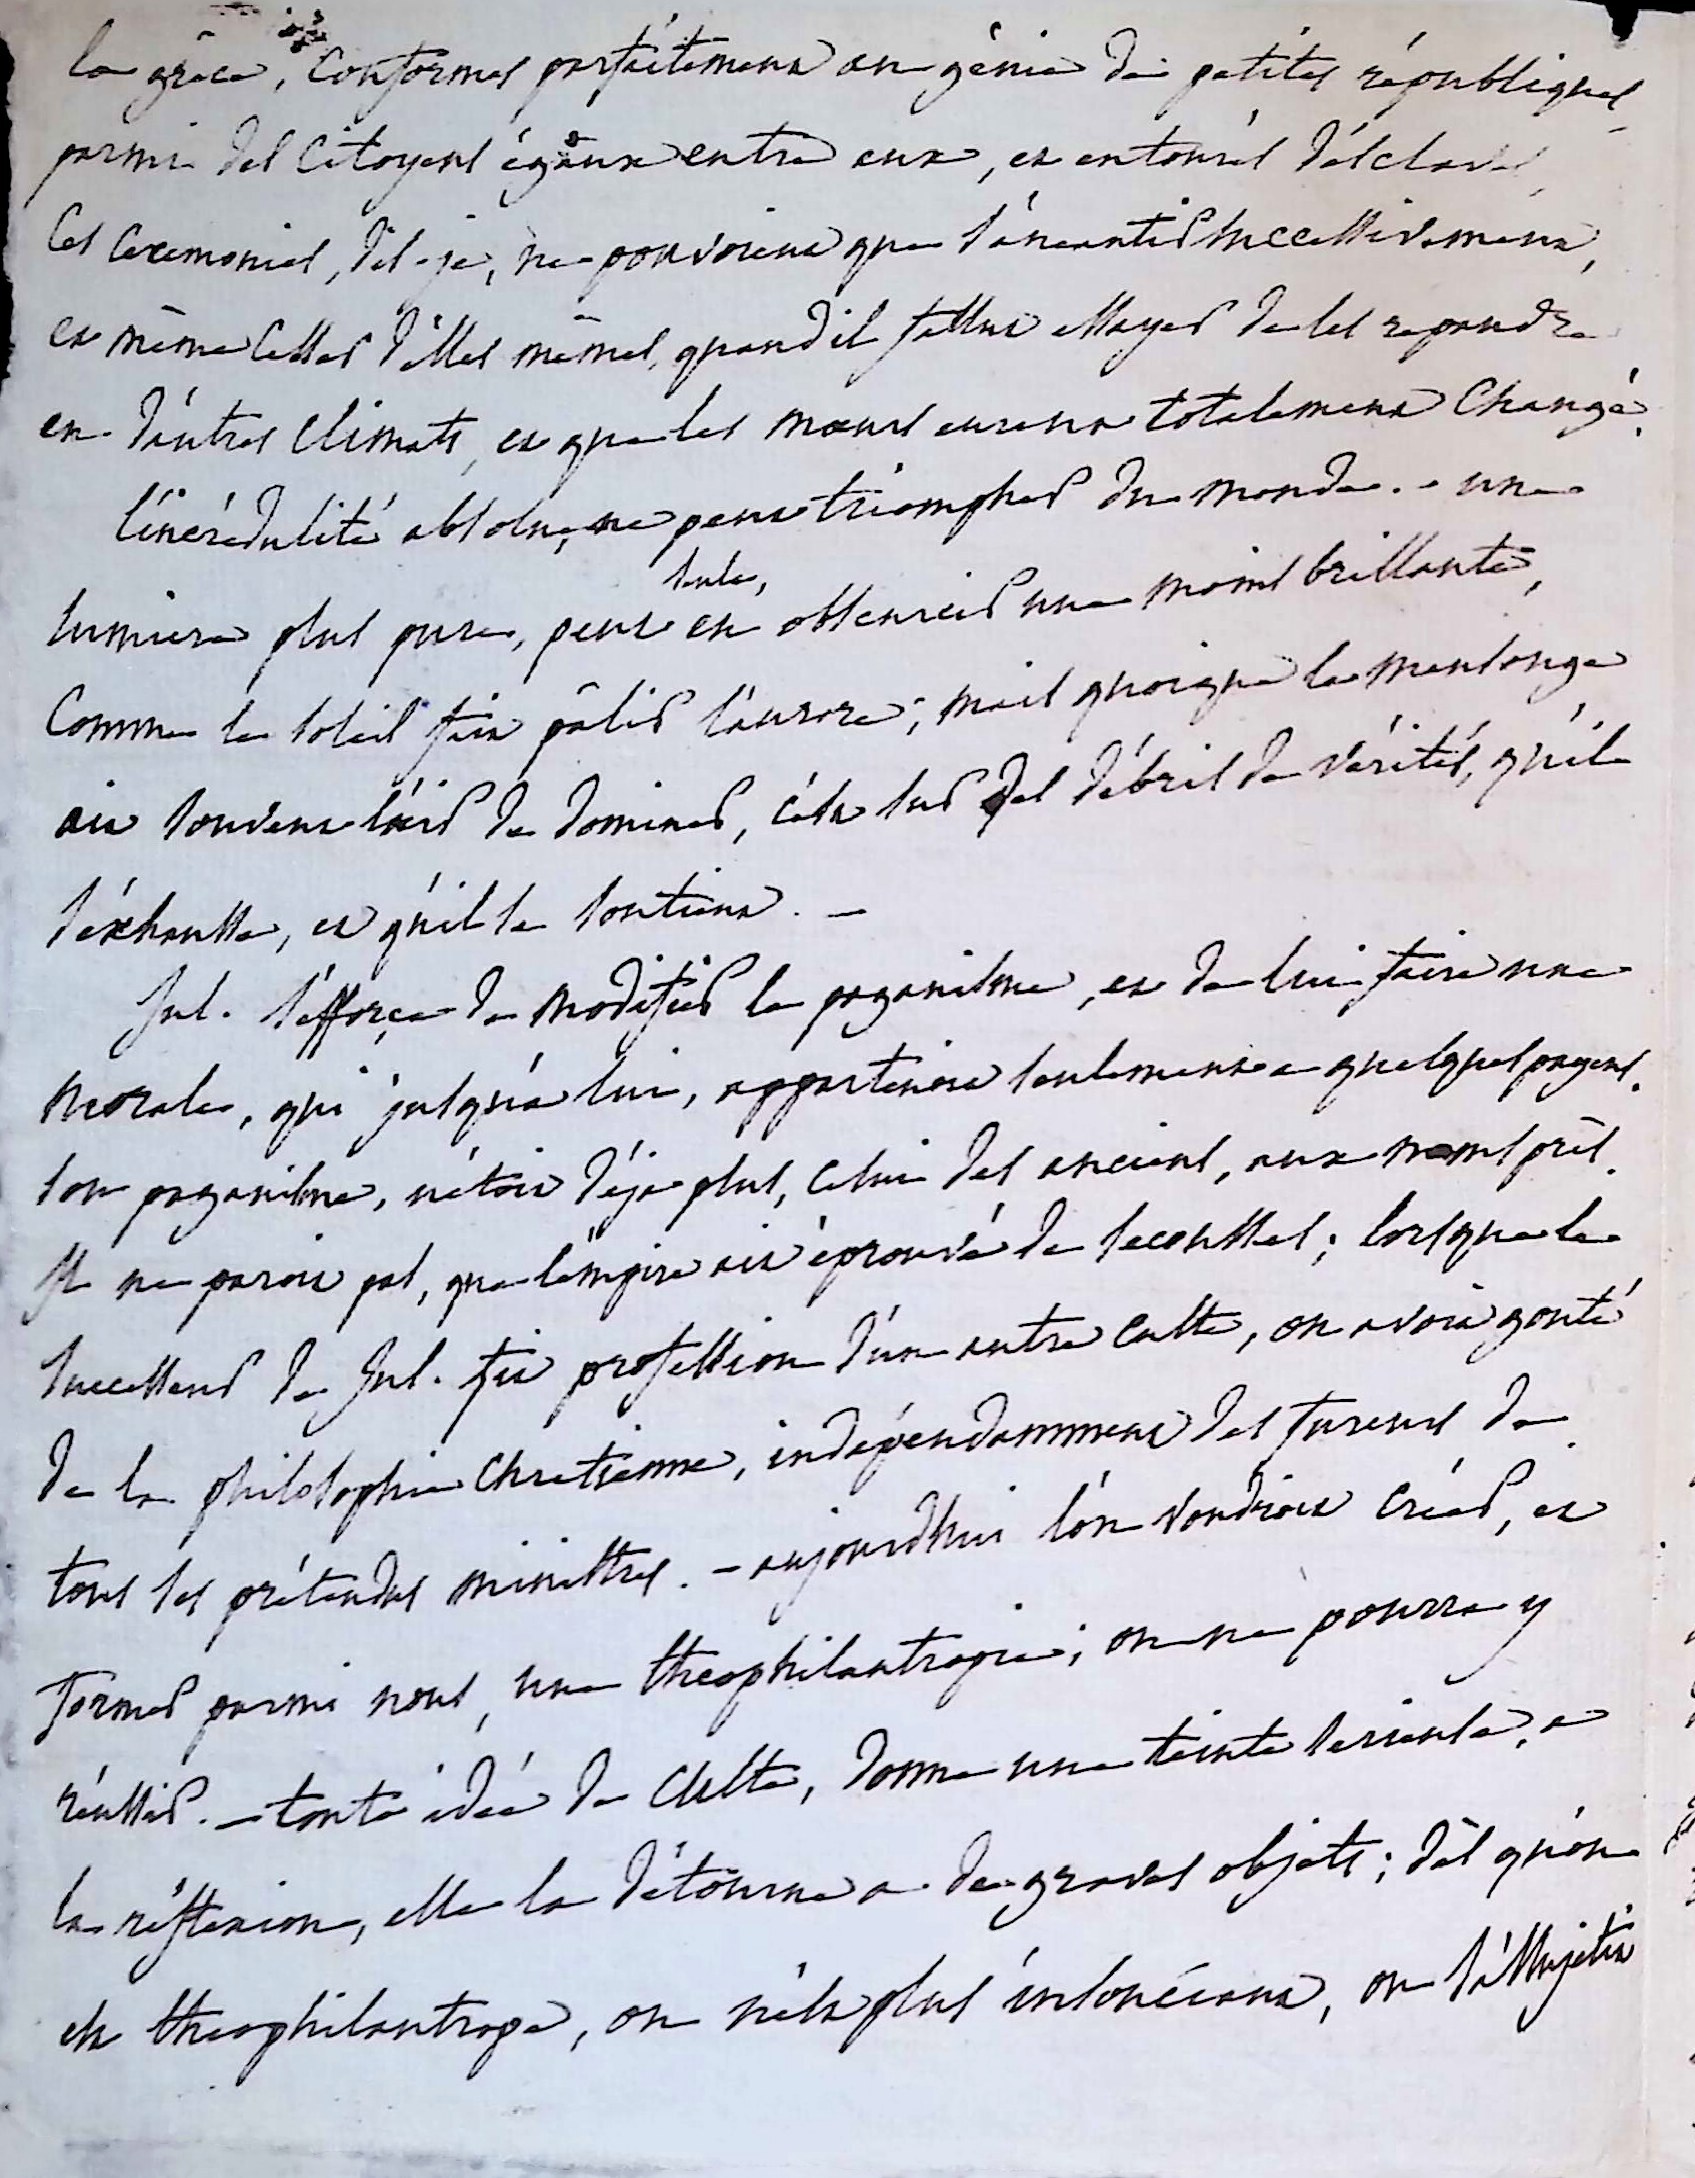 la grâce, conformes parfaitement au génie de petites républiques
parmi des citoyens égaux entre eux, et entourés d'esclaves,
ces ceremonies, dis-je, ne pouvoient que s'anéantir successivement,
et même cesser d'elles mêmes, quand il fallut essayer de les repandre
en d'autres climats, et que les mœurs eurent totalement changé.
l'incrédulité absolue, ne peut triompher du monde. - une
lumiere plus pure, peut seule, en obscurcir une moins brillante,
comme le soleil fait pâlir l'aurore; mais quoique le mensonge
ait souvent l'air de dominer, c'est sur des débris de vérités, qu'il
s'exhausse, et qu'il se soutient. -
Jul. s'efforça de modifier le paganisme, et de lui faire une
morale, qui jusqu'à lui, appartenoit seulement a quelques payens.
son paganisme, n'étoit déja plus, celui des anciens, aux noms près.
Il ne paroit pas, que l'empire ait éprouvé de secousses; lorsque le
successeur de Jul. fit profession d'un autre culte, on avoit gouté
de la philosophie chretienne, indépendamment des fureurs de
tous ses prétendus ministres. - aujourdhui l'on voudroit créer, et
former parmi nous, une theophilantropie; on ne pourra y
réussir. - toute idée de culte, donne une teinte serieuse, a
la réflexion, elle la détourne a de graves objets; dès qu'on
est theophilantrope, on n'est plus insouciant, on s'assujetit